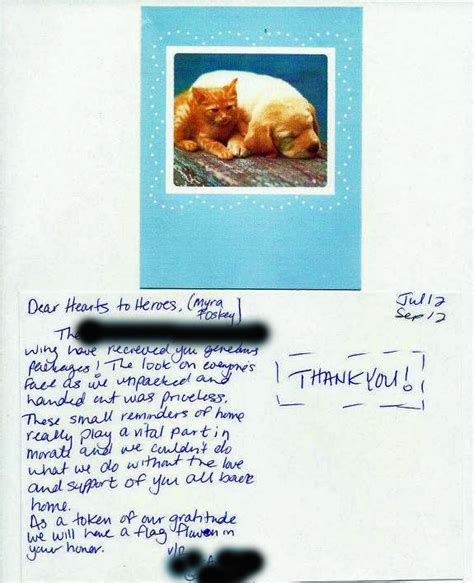 Dear Hearts to Heroes, (Myra
Foskey]
Jul 12
Sep 12
The
wing have recieved you generous
packages! The look on everyone's
face as we unpacked and
handed out was priceless.
These small reminders of home
really play a vital part in
morale and we couldn't do
what we do without the love
and support of you all back
home.
As a token of our gratitude
we will have a flag flown in
your honor.
v/r
THANK YOU!